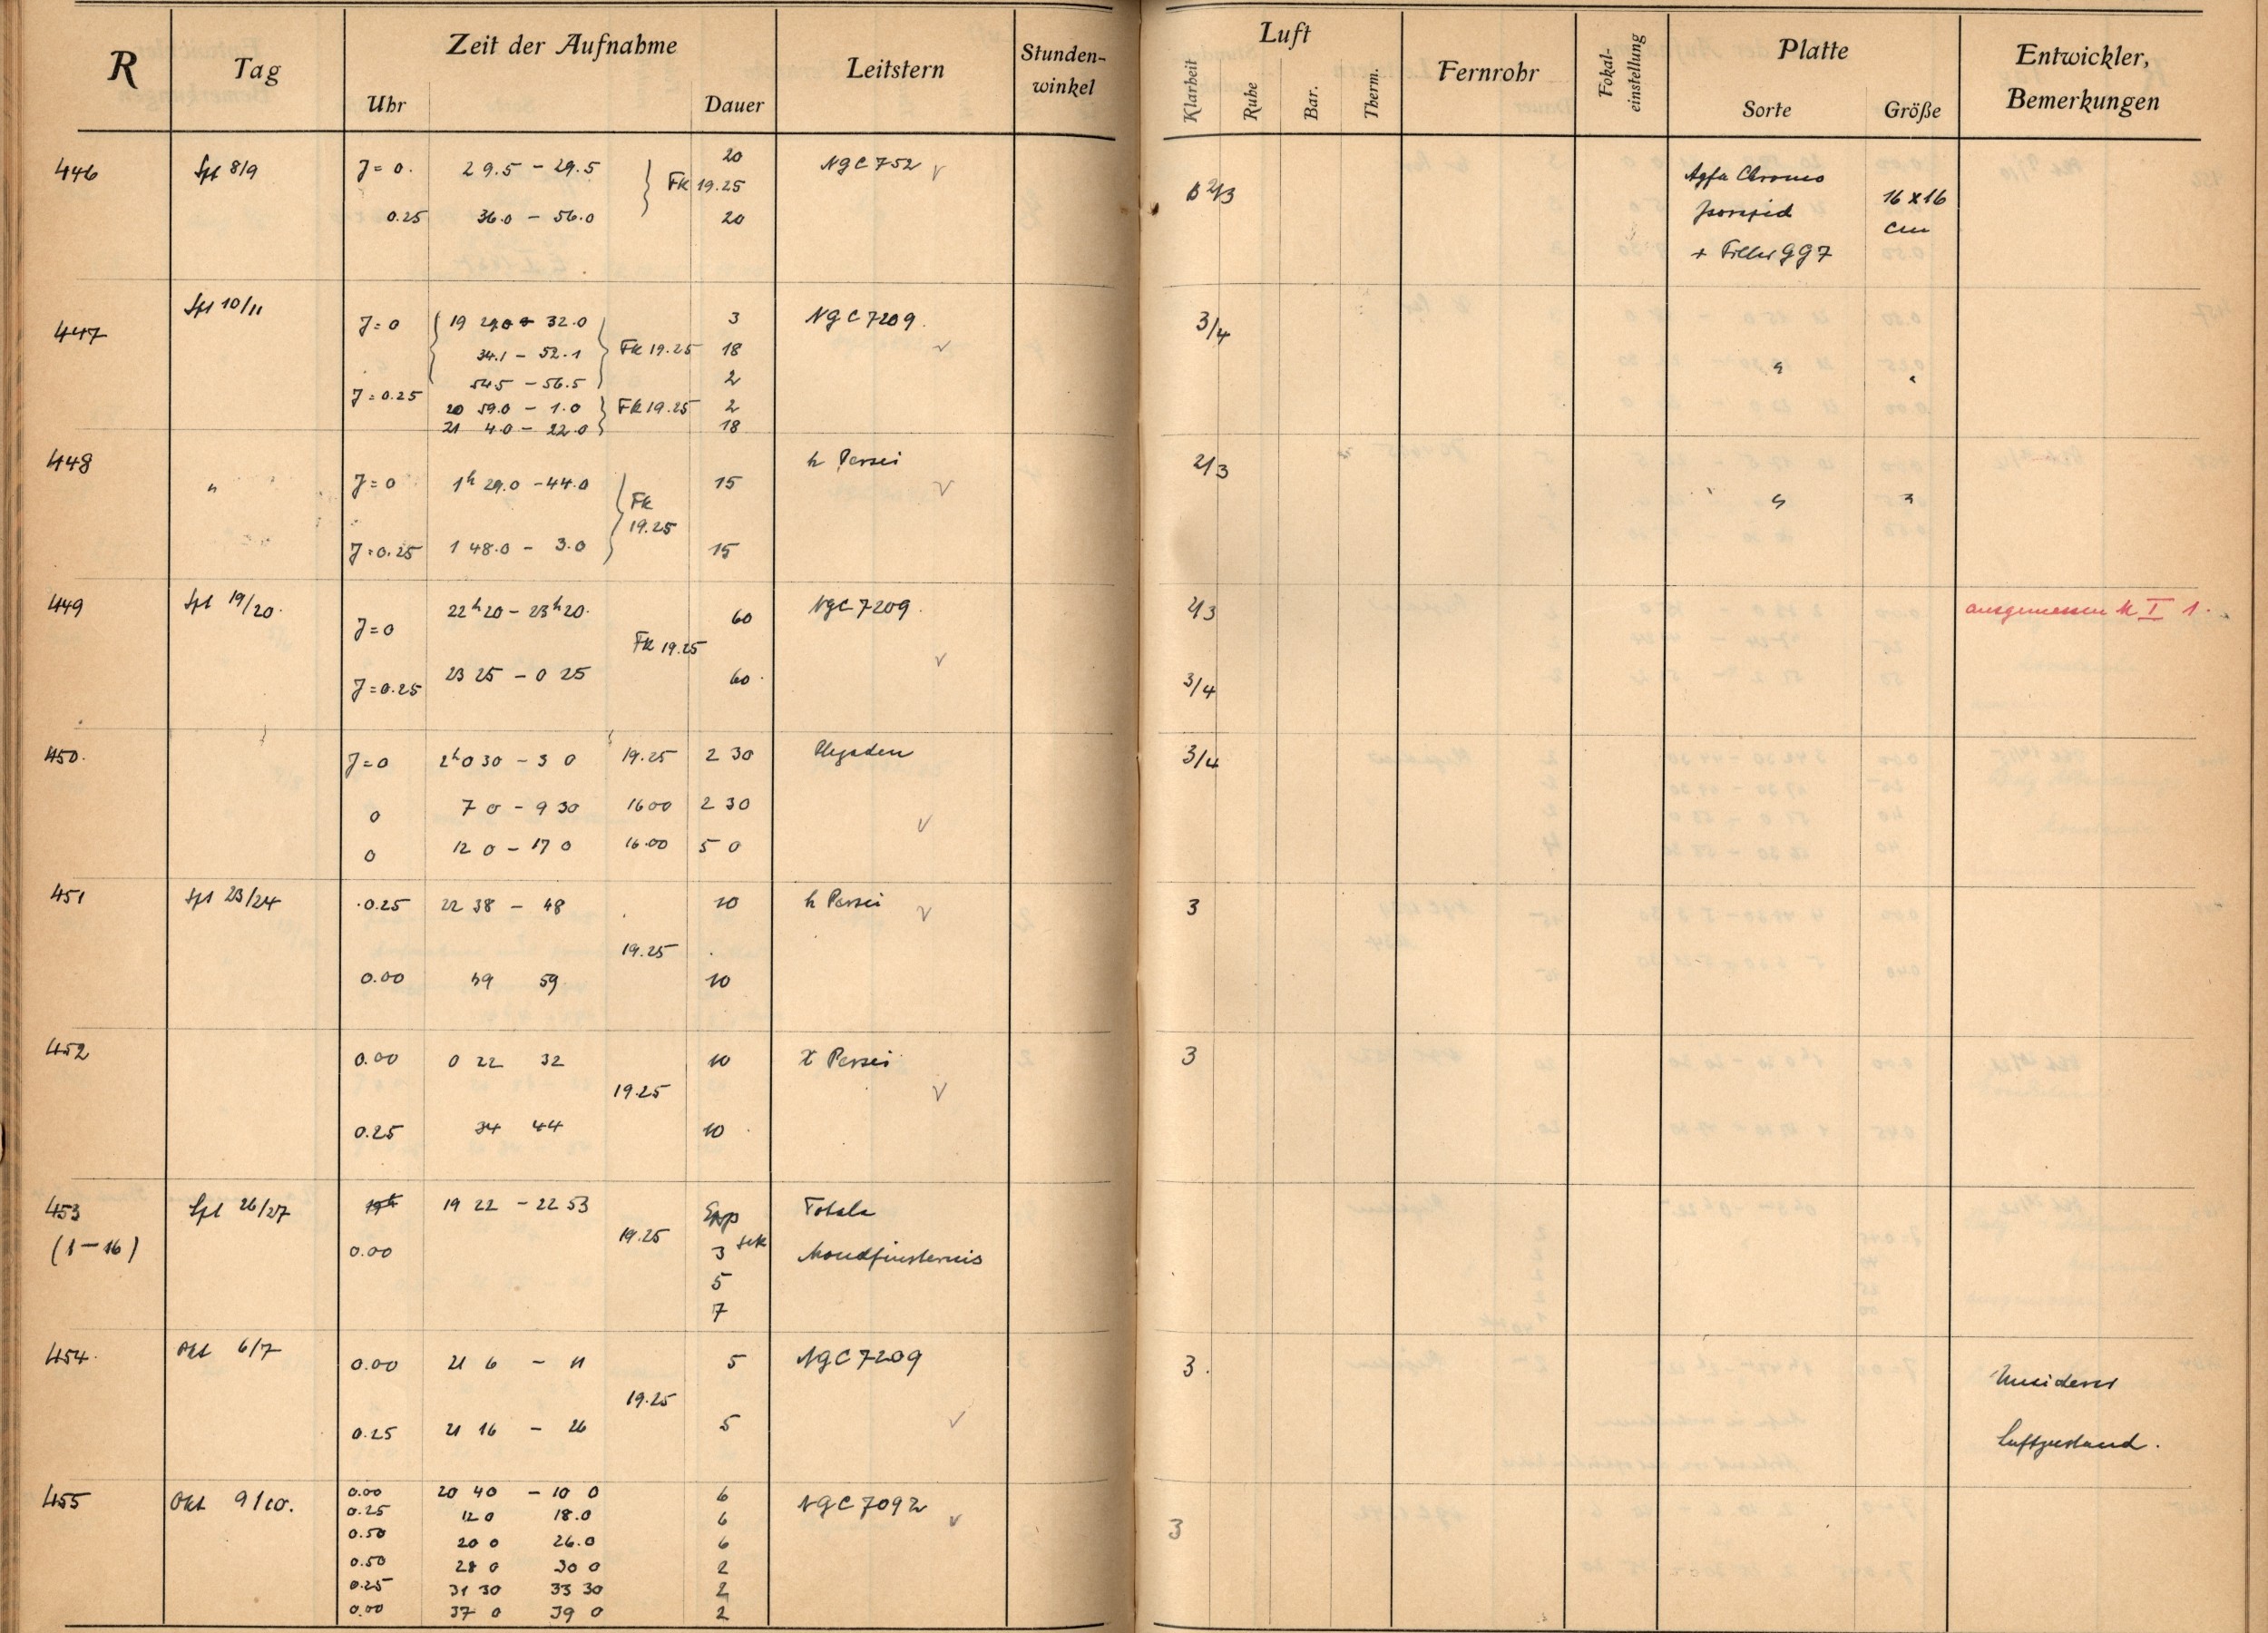 R Tag Zeit der Aufnahme Leitstern Stunden-winkel Luft Fernrohr Fokal-einstellung Platte Entwickler, Bemerkungen
Uhr Dauer Klarheit Ruhe Bar. Therm. Sorte Größe
446 Spt 8/9 J = 0. 29.5 - 29.5 20 NGC 752 2/3 Agfa Chromo
Fk 19.25 Isorapid 16 x 16
0.25 36.0 - 56.0 20 cm
+ Filter GG 7
447 Spt 10/11 J = 0 19 32.0 3 NGC 7209. 3/4
34.1 - 52.1 Fk 19.25 18
54.5 - 56.5 2
J = 0.25 20 59.0 - 1.0 Fk 19.25 2
21 4.0 - 22.0 18
448 h Persei 2/3
" J = 0 1h 29.0 - 44.0 15
Fk
19.25
J = 0.25 1 48.0 - 3.0 15
449 Spt 19/20. J = 0 22h 20 - 23h 20. 60 NGC 7209. 2/3 ausgemessen M I 1.
Fk 19.25
J = 0.25 23 25 - 0 25 60. 3/4
450. J = 0 2h 0 30 - 3 0 19.25 2 30 Hyaden 3/4
0 7 0 - 9 30 16 00 2 30
0 12 0 - 17 0 16.00 5 0
451 Spt 23/24 0.25 22 38 - 48 10 h Persei 3
19.25
0.00 49 59 10
452 0.00 0 22 32 10 χ Persei 3
19.25
0.25 34 44 10
453 Spt 26/27 19 22 - 22 53 Exp Totale
(1 - 16) 0.00 19.25 3 sek Mondfinsternis
5
7
454. Okt 6/7 0.00 21 6 - 11 5 NGC 7209 3.
19.25
0.25 21 16 - 26 5 Luftzustand.
455 Okt 9/10. 0.00 20 40 - 10 0 6 NGC 7092 3
0.25 12 0 18.0 6
0.50 20 0 26.0 6
0.50 28 0 30 0 2
0.25 31 30 33 30 2
0.00 37 0 39 0 2